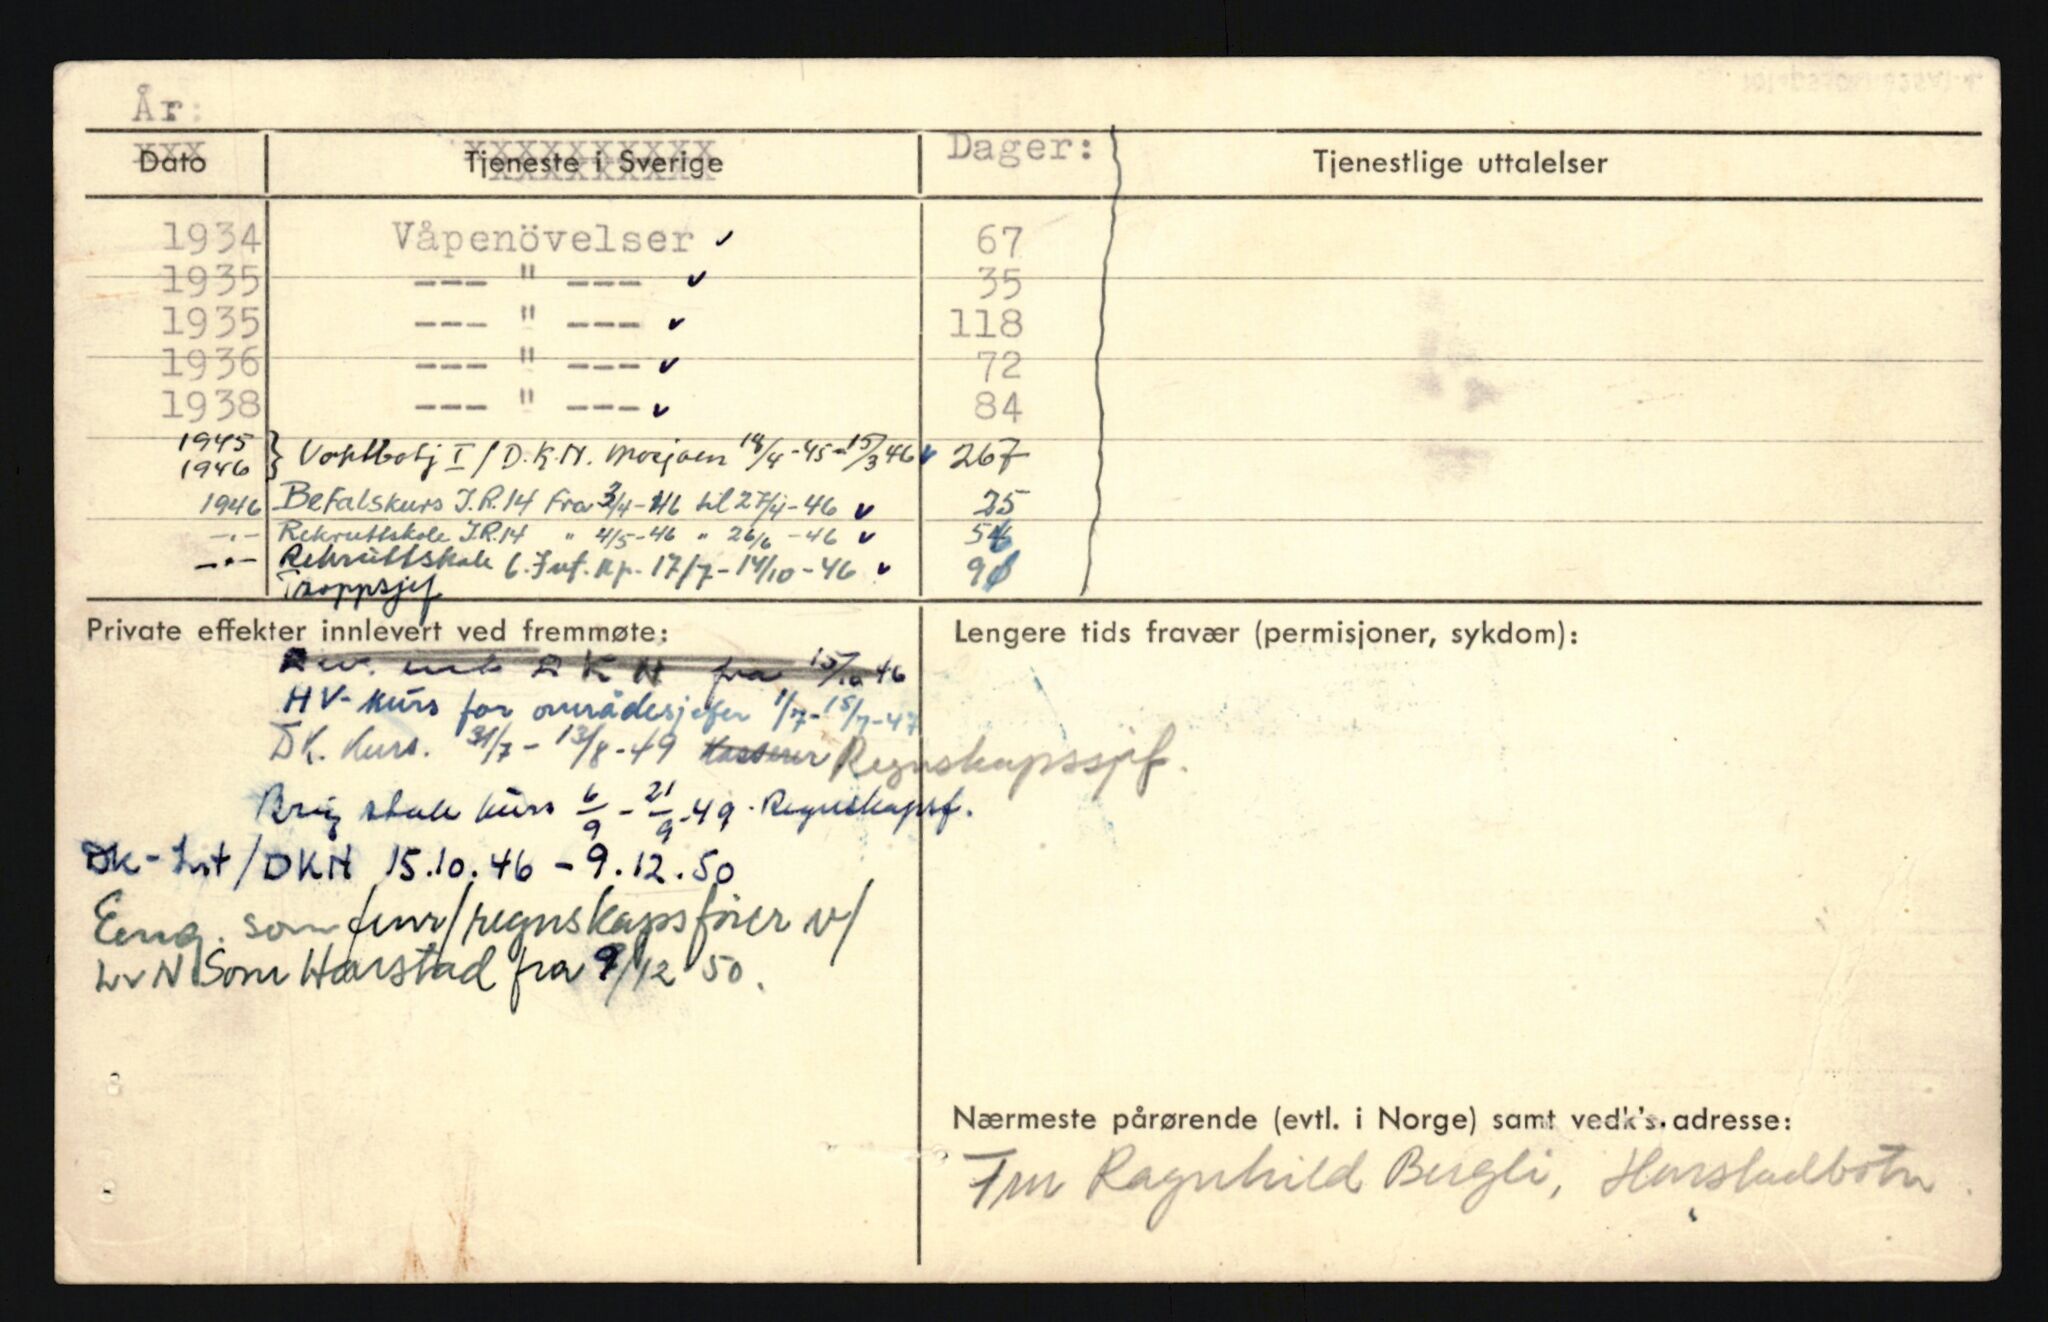 År:
Dato Tjeneste i Sverige Dager: Tjenestlige uttalelser
1934 Våpenövelser ✓ 67
1935 --- " --- ✓ 35
1935 --- " --- ✓ 118
1936 --- " --- ✓ 72
1938 --- " --- ✓ 84
1945
1946 } Vaktbatj I / D.K.N. Mosjøen 18/4-45-15/3 46 ✓ 267
1946 Befalskurs I.R.14 fra 3/4-46 til 27/4-46 ✓ 25
-.- Rekruttskole I.R.14 " 4/5-46 " 26/6-46 ✓
-.- Rekruttskole 6. Inf. Kp. 17/7-14/10-46 ✓ 90
Troppsjef
Private effekter innlevert ved fremmøte: Lengere tids fravær (permisjoner, sykdom):
D K N fra 15/10 46
HV-kurs for områdesjefer 1/7-15/7-47
DK. Kurs. 31/7-13/8-49 Kasserer Regnskapssjef.
Brig stab kurs 6/9-21/9-49. Regnskapsf.
DK-Int/DKN 15.10.46 - 9.12.50
Eng. som fenr/regnskapsfører v/
LvN Som Harstad fra 9/12 50.
Nærmeste pårørende (evtl. i Norge) samt vedk's. adresse:
Fru Ragnhild Bergli, Harstadbotn